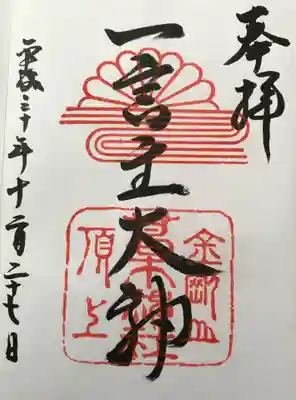 奉拝
一言主大神
平成三十年十二月二十七日
金剛山
葛木神社
頂上